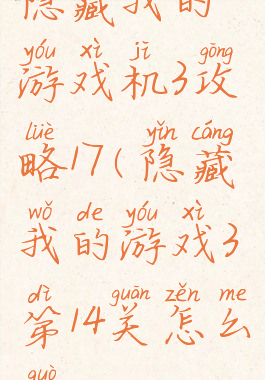 隐藏我的
yóu xì jī gōng
游戏机3攻
lüè yǐn cáng
略17(隐藏
wǒ de yóu xì
我的游戏3
dì guān zěn me
第14关怎么
guò